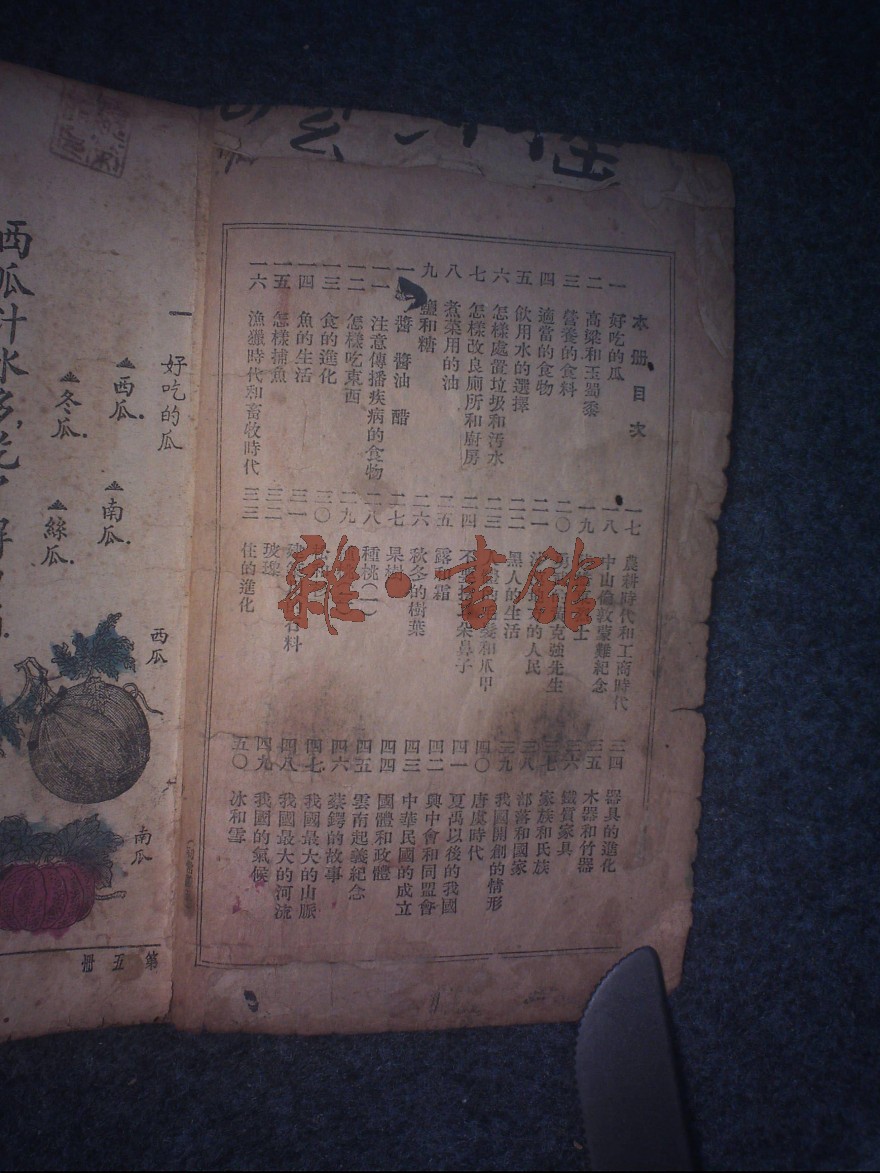 本册目次
一 好吃的瓜
二 高粱和玉蜀黍
三 營養的食料
四 適當的食物
五 飲用水的選擇
六 怎樣處置垃圾和汚水
七 怎樣改良廁所和廚房
八 煮菜用的油
九 鹽和糖
醬 醬油 醋
一一 注意傳播疾病的食物
一二 怎樣吃東西
一三 食的進化
一四 魚的生活
一五 怎樣捕魚
一六 漁獵時代和畜牧時代
一七 農耕時代和工商時代
一八 中山倫敦蒙難紀念
一九 士
二〇 黃克強先生
二一 的人民
二二 黑人的生活
二三 髮和爪甲
二四 朵鼻子
二五 露和霜
二六 秋冬的樹葉
二七 果樹
二八 種桃(一)
二九
三〇
三一 石料
三二 玻璃
三三 住的進化
三四 器具的進化
三五 木器和竹器
三六 鐵質家具
三七 家族和民族
三八 部落和國家
三九 我國開創的情形
四〇 唐虞時代
四一 夏禹以後的我國
四二 興中會和同盟會
四三 中華民國的成立
四四 國體和政體
四五 雲南起義紀念
四六 蔡鍔的故事
四七 我國最大的山脈
四八 我國最大的河流
四九 我國的氣候
五〇 冰和雪
雜·書館
一 好吃的瓜
西瓜.
南瓜.
冬瓜.
絲瓜.
西瓜汁水多,
西瓜
南瓜
第五册